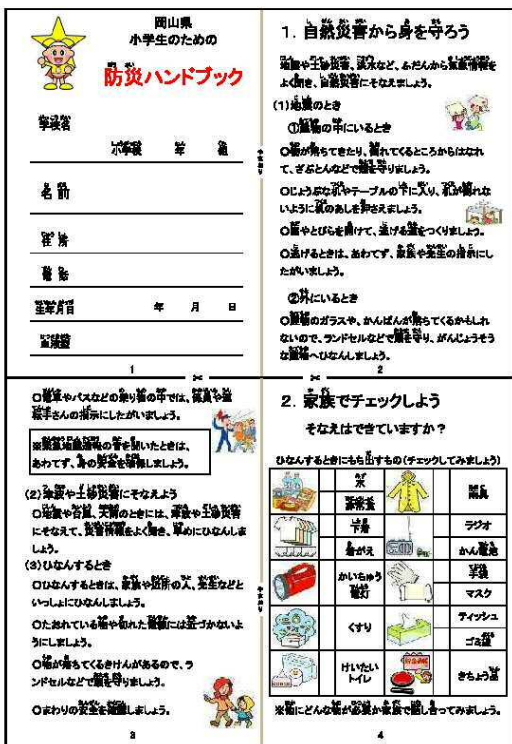 岡山県
小学生のための
防災ハンドブック
学校名
小学校 年 組
名前
住所
電話
生年月日 年 月 日
血液型
1
やまおり
1. 自然災害から身を守ろう
地震や土砂災害、洪水など、ふだんから気象情報を
よく聞き、自然災害にそなえましょう。
(1)地震のとき
①建物の中にいるとき
○物が落ちてきたり、倒れてくるところからはなれ
て、ざぶとんなどで頭を守りましょう。
○じょうぶな机やテーブルの下に入り、机が倒れな
いように机のあしを押さえましょう。
○窓やとびらを開けて、逃げる道をつくりましょう。
○逃げるときは、あわてず、家族や先生の指示にし
たがいましょう。
②外にいるとき
○建物のガラスや、かんばんが落ちてくるかもしれ
ないので、ランドセルなどで頭を守り、がんじょうそう
な建物へひなんしましょう。
2
○電車やバスなどの乗り物の中では、係員や運
転手さんの指示にしたがいましょう。
※緊急地震速報の音を聞いたときは、
あわてず、身の安全を確保しましょう。
(2)津波や土砂災害にそなえよう
○地震や台風、大雨のときには、津波や土砂災害
にそなえて、災害情報をよく聞き、早めにひなんしま
しょう。
(3)ひなんするとき
○ひなんするときは、家族や近所の人、先生などと
いっしょにひなんしましょう。
○たおれている物や切れた電線には近づかないよ
うにしましょう。
○物が落ちてくるきけんがあるので、ラ
ンドセルなどで頭を守りましょう。
○まわりの安全を確認しましょう。
3
やまおり
2. 家族でチェックしよう
そなえはできていますか?
ひなんするときにもち出すもの(チェックしてみましょう)
水
非常食
雨具
下着
着がえ
ラジオ
かん電池
かいちゅう
電灯
手袋
マスク
くすり
ティッシュ
ゴミ袋
けいたい
トイレ
きちょう品
※他にどんな物が必要か家族で話し合ってみましょう。
4